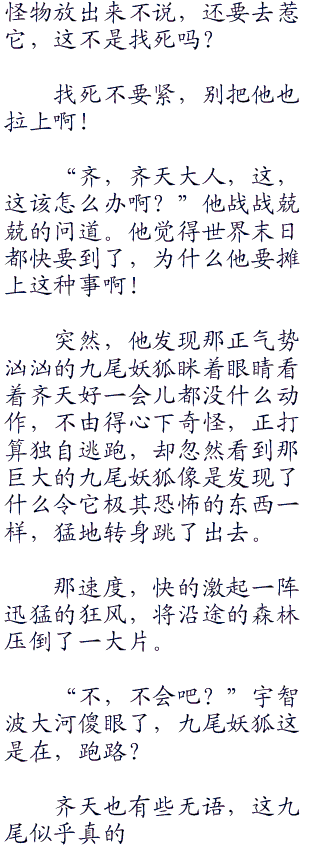 怪物放出来不说，还要去惹
它，这不是找死吗？
找死不要紧，别把他也
拉上啊！
“齐，齐天大人，这，
这该怎么办啊？”他战战兢
兢的问道。他觉得世界末日
都快要到了，为什么他要摊
上这种事啊！
突然，他发现那正气势
汹汹的九尾妖狐眯着眼睛看
着齐天好一会儿都没什么动
作，不由得心下奇怪，正打
算独自逃跑，却忽然看到那
巨大的九尾妖狐像是发现了
什么令它极其恐怖的东西一
样，猛地转身跳了出去。
那速度，快的激起一阵
迅猛的狂风，将沿途的森林
压倒了一大片。
“不，不会吧？”宇智
波大河傻眼了，九尾妖狐这
是在，跑路？
齐天也有些无语，这九
尾似乎真的